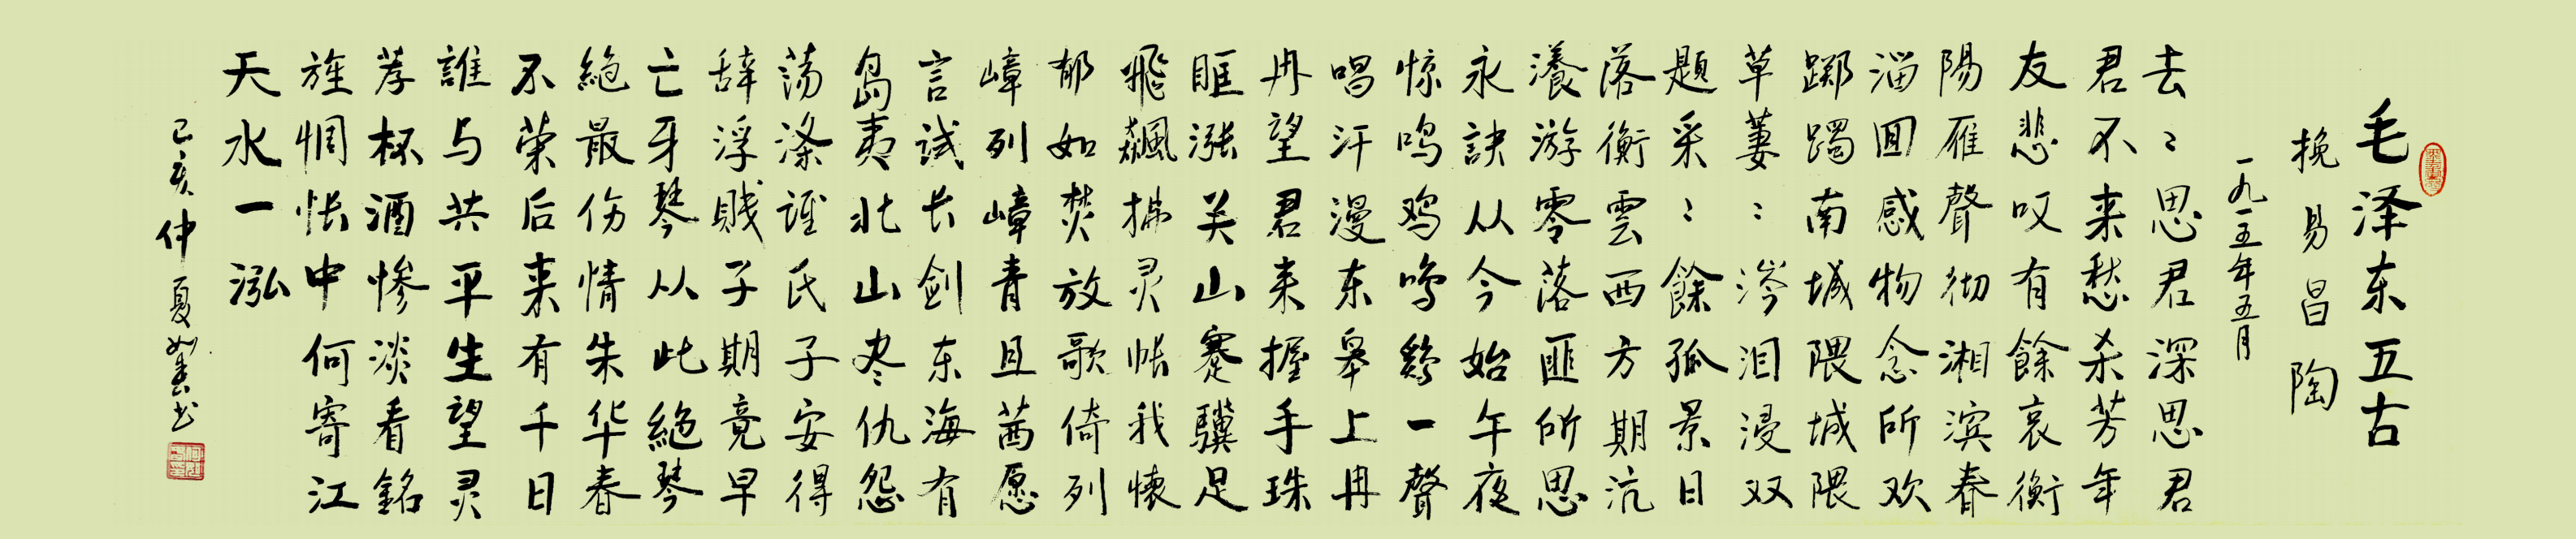 毛泽东五古
挽易昌陶
一九一五年五月
去〻思君深思君
君不来愁杀芳年
友悲叹有餘哀衡
陽雁聲彻湘滨春
溜囬感物念所欢
踯躅南城隈城隈
草萋〻涔泪浸双
題采〻餘孤景日
落衡雲西方期沆
瀁游零落匪所思
永訣从今始午夜
惊鸣鸡鸣鷄一聲
唱汗漫东皋上冉
冉望君来握手珠
眶漲关山蹇驥足
飛飈拂灵帐我懐
郁如焚放歌倚列
嶂列嶂青且茜愿
言試长剑东海有
岛夷北山尽仇怨
荡涤谁氏子安得
辞浮贱子期竟早
亡牙琴从此絶琴
絶最伤情朱华春
不荣后来有千日
誰与共平生望灵
荐杯酒惨淡看銘
旌惆怅中何寄江
天水一泓
己亥仲夏